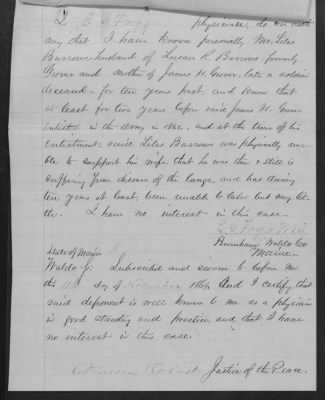 I, physician, do on oath
say that I have known personally Mr. Silas
Barrows husband of Lucea R. Barrows formerly
Grover and mother of James H. Grover, late a soldier
deceased - for ten years past, and know that
at least for two years before said James H. Grover
enlisted in the army in 1862, and at the time of his
enlistment, said Silas Barrows was physically una-
ble to support his wife: that he was then & still is
suffering from disease of the lungs, and has during
ten years at least, been unable to labor but very lit-
tle. I have no interest in this case.
Burnham Waldo Co
Maine
State of Maine
Waldo ss. Subscribed and sworn to before me
this day of And I certify that
said deponent is well known to me as a physician
in good standing and practice and that I have
no interest in this case.
Justice of the Peace.